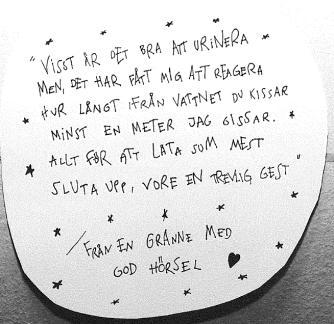 "VISST ÄR DET BRA ATT URINERA
MEN, DET HAR FÅTT MIG ATT REAGERA
HUR LÅNGT IFRÅN VATTNET DU KISSAR
MINST EN METER JAG GISSAR.
ALLT FÖR ATT LÅTA SOM MEST
SLUTA UPP, VORE EN TREVLIG GEST"
/FRÅN EN GRANNE MED
GOD HÖRSEL